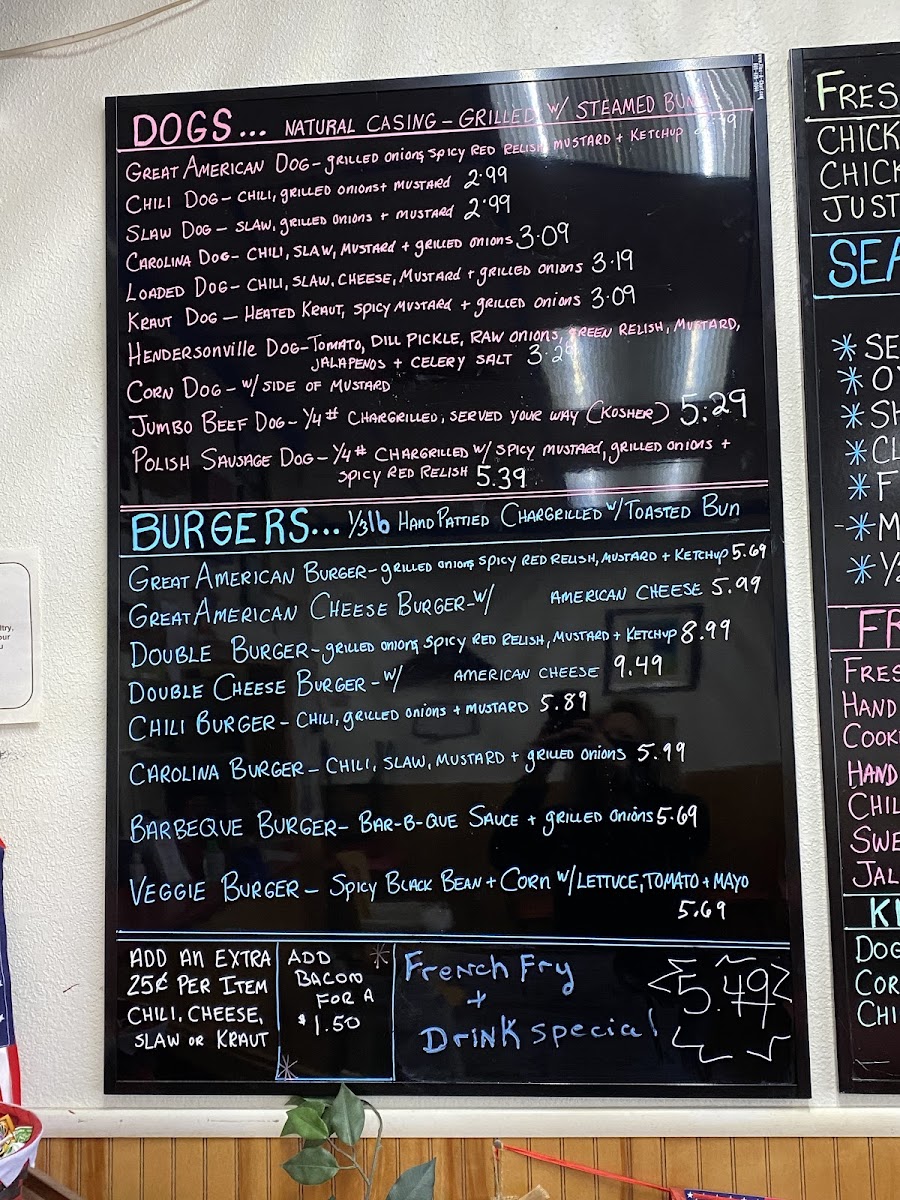 DOGS... NATURAL CASING - GRILLED W/ STEAMED BUN
GREAT AMERICAN DOG - GRILLED ONIONS, SPICY RED RELISH, MUSTARD + KETCHUP
CHILI DOG - CHILI, GRILLED ONIONS + MUSTARD 2.99
SLAW DOG - SLAW, GRILLED ONIONS + MUSTARD 2.99
CAROLINA DOG - CHILI, SLAW, MUSTARD + GRILLED ONIONS 3.09
LOADED DOG - CHILI, SLAW, CHEESE, MUSTARD + GRILLED ONIONS 3.19
KRAUT DOG - HEATED KRAUT, SPICY MUSTARD + GRILLED ONIONS 3.09
HENDERSONVILLE DOG - TOMATO, DILL PICKLE, RAW ONIONS, GREEN RELISH, MUSTARD,
JALAPENOS + CELERY SALT 3.29
CORN DOG - W/ SIDE OF MUSTARD
JUMBO BEEF DOG - 1/4# CHARGRILLED, SERVED YOUR WAY (KOSHER) 5.29
POLISH SAUSAGE DOG - 1/4# CHARGRILLED W/ SPICY MUSTARD, GRILLED ONIONS +
SPICY RED RELISH 5.39
BURGERS... 1/3 lb HAND PATTIED CHARGRILLED W/ TOASTED BUN
GREAT AMERICAN BURGER - GRILLED ONIONS, SPICY RED RELISH, MUSTARD + KETCHUP 5.69
GREAT AMERICAN CHEESE BURGER - W/ AMERICAN CHEESE 5.99
DOUBLE BURGER - GRILLED ONIONS, SPICY RED RELISH, MUSTARD + KETCHUP 8.99
DOUBLE CHEESE BURGER - W/ AMERICAN CHEESE 9.49
CHILI BURGER - CHILI, GRILLED ONIONS + MUSTARD 5.89
CAROLINA BURGER - CHILI, SLAW, MUSTARD + GRILLED ONIONS 5.99
BARBEQUE BURGER - BAR-B-QUE SAUCE + GRILLED ONIONS 5.69
VEGGIE BURGER - SPICY BLACK BEAN + CORN W/ LETTUCE, TOMATO + MAYO
5.69
ADD AN EXTRA
25¢ PER ITEM
CHILI, CHEESE,
SLAW OR KRAUT
ADD
BACON
FOR A
$1.50
French Fry
+
Drink special
5.49
FRES
CHICK
CHICK
JUST
SEA
* SE
* OY
* SH
* CL
* F
* M
* 1/2
FR
FRES
HAND
COOK
HAND
CHIL
SWE
JAL
KI
DOG
COR
CHI